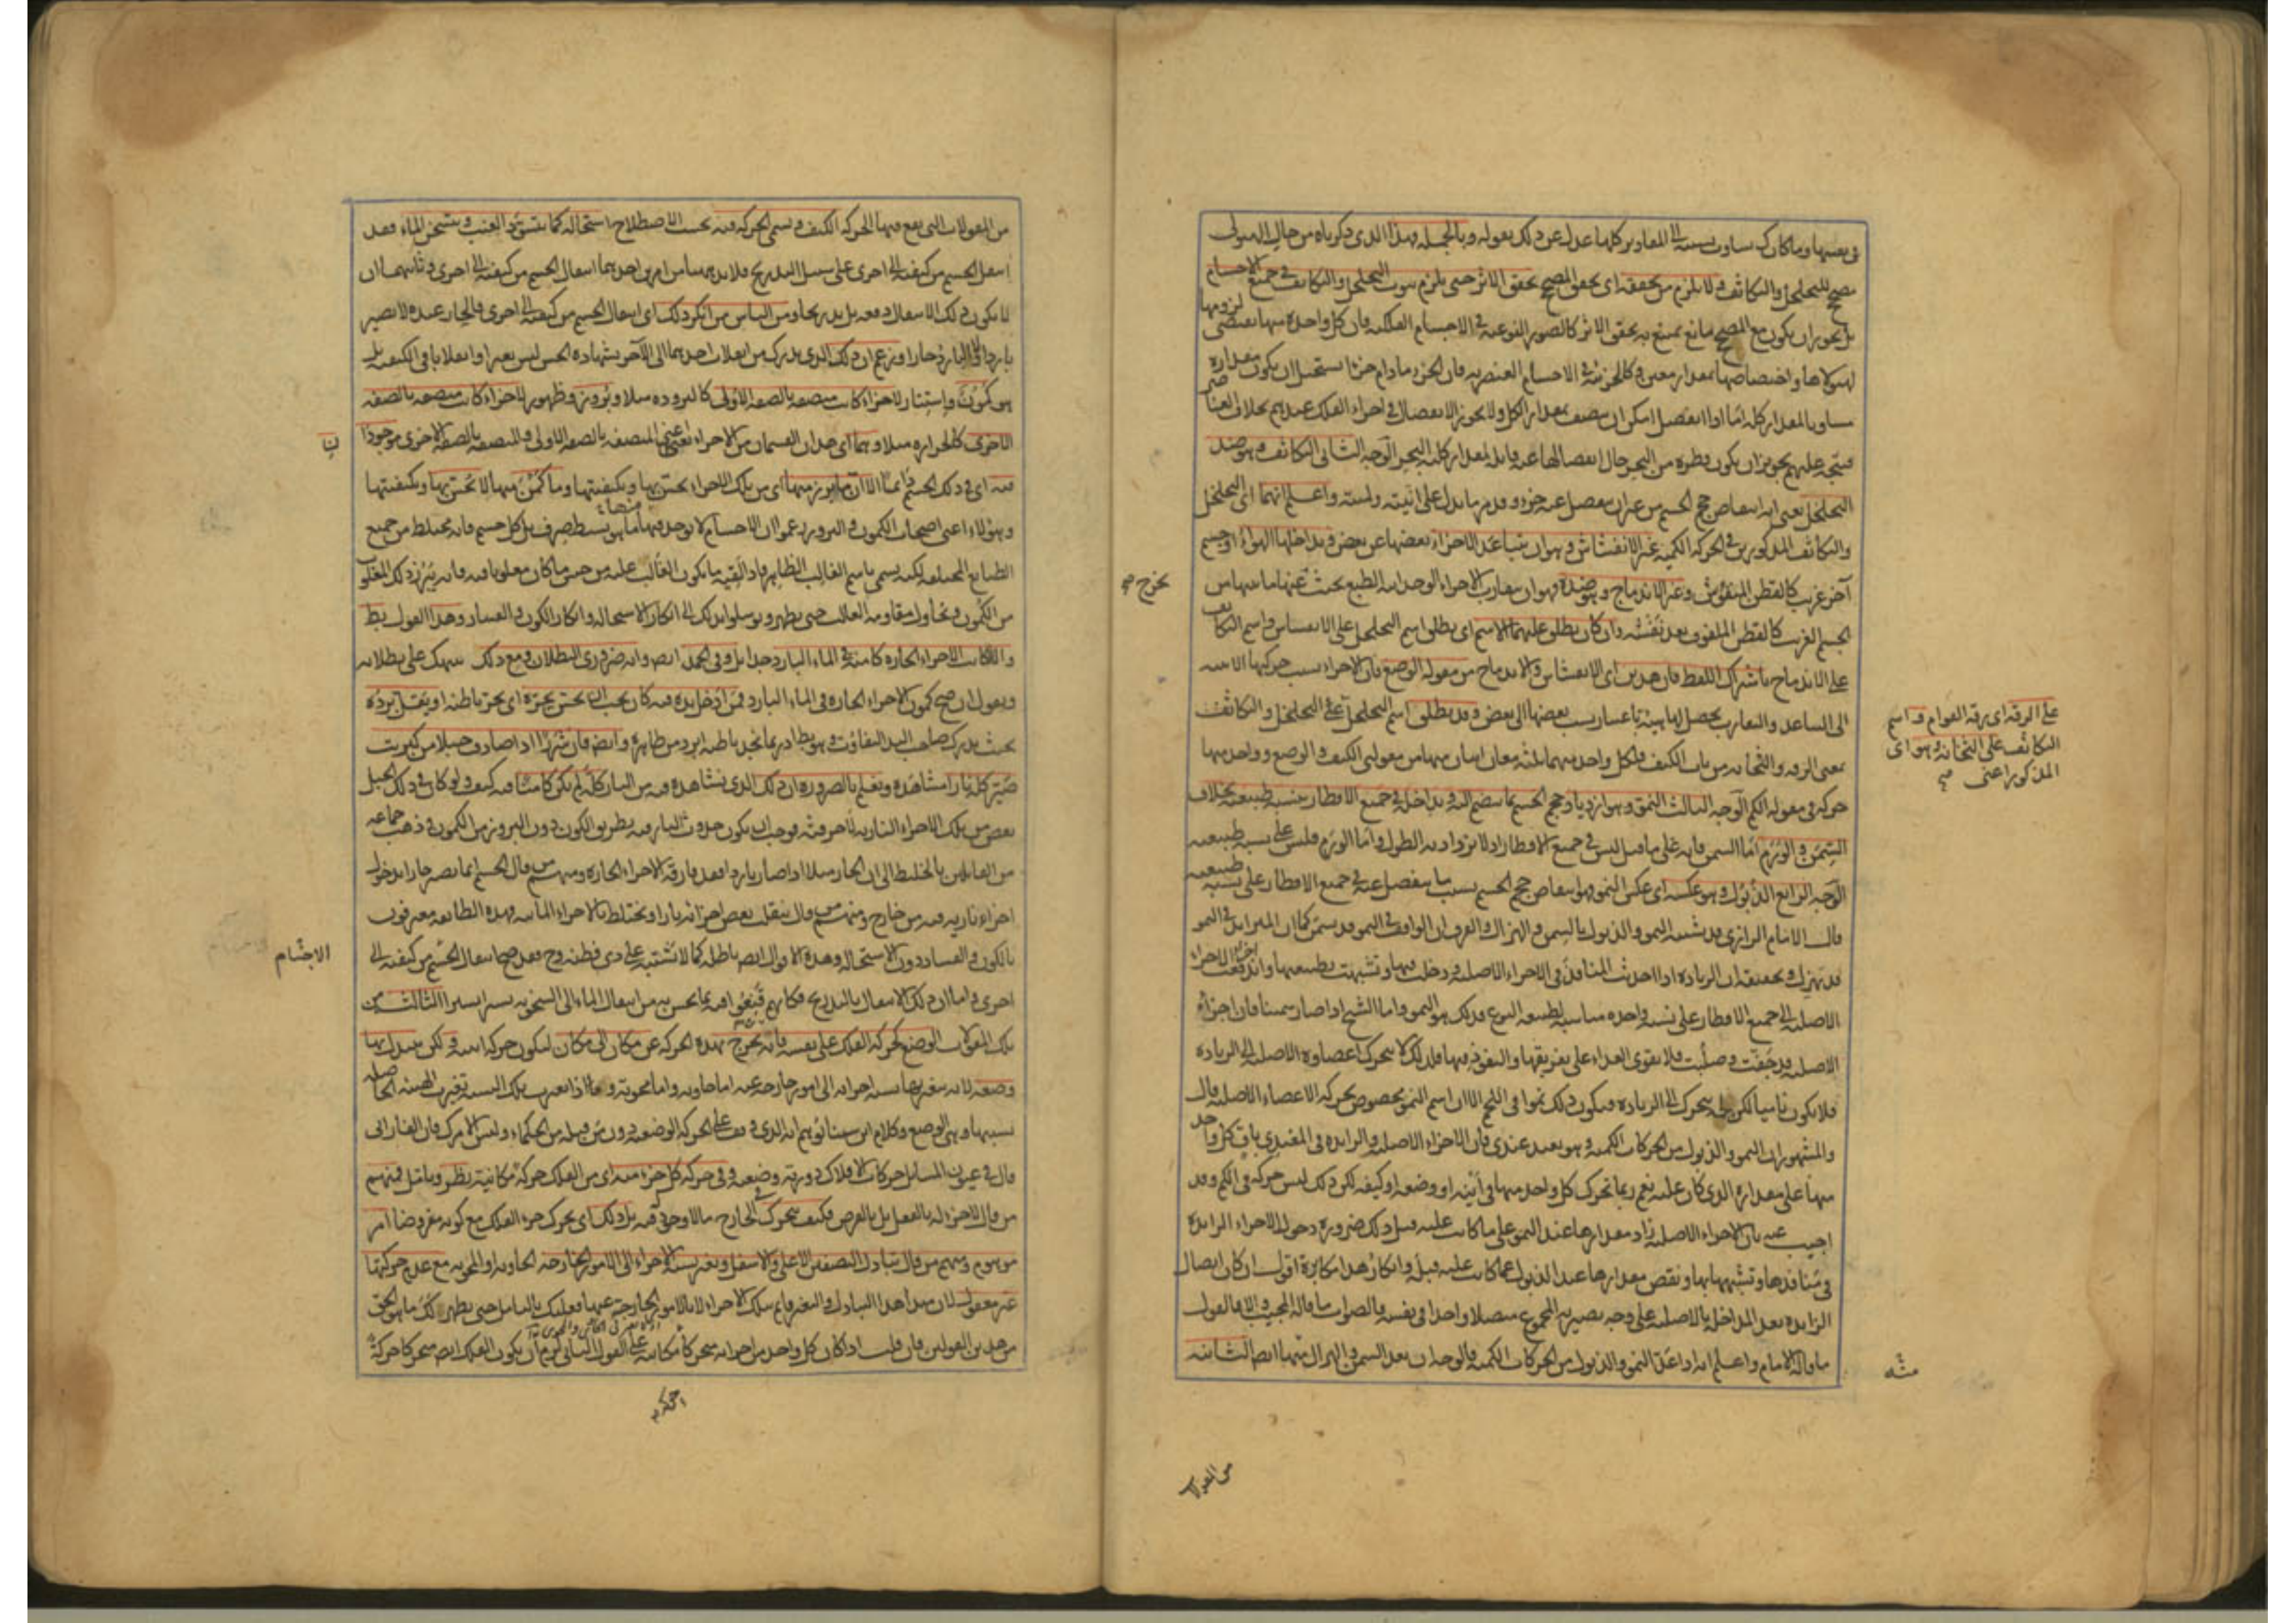 في نفسها وما كان كذلك تساوت نسبته الى المقادير كلها عدل عن ذلك بقوله وبالجملة فهذا الذي ذكرناه من حال الهيولى
مصحح للتخلخل والتكاثف ولا يلزم من تحققه اى تحقق المصحح تحقق الاثر حتى يلزم ثبوت التخلخل والتكاثف في جميع الاجسام
بل يجوز ان يكون مع المصحح مانع يمتنع به تحقق الاثر كالصور النوعية في الاجسام الفلكية فان كل واحدة منها يقتضى لزومها
لهيولاها واختصاصها بمقدار معين وكالجزئية في الاجسام العنصرية فان الجزء ما دام جزءا استحيل ان يكون مقداره
مساويا لمقدار كله اما اذا انفصل امكن ان يتصف بمقدار الكل ولا يجوز الانفصال في اجزاء الفلك عندهم بخلاف العناصر
فيتجه عليهم تجويز ان يكون قطرة من البحر حال انفصالها عنه قابلة لمقدار كلية البحر الوجه الثاني التكاثف وهو ضد
التخلخل يعنى انه انتقاص حجم الجسم من غير ان ينفصل عنه جزء وقد مر ما يدل على انيته ولميته واعلم انهما اى التخلخل
والتكاثف المذكورين في الحركة الكمية غير الانفشاش وهو ان يتباعد الاجزاء بعضها عن بعض ويداخلها الهواء او جسم
آخر غريب كالقطن المنفوش وغير الاندماج وهو ضده فهو ان يتقارب الاجزاء الوحدانية الطبع بحيث يخرج عنها ما بينها من
الجسم الغريب كالقطن الملفوف بعد نفشه وان كان يطلق عليهما الاسم اى يطلق اسم التخلخل على الانفشاش واسم التكاثف
على الاندماج باشتراك اللفظ فان هذين اى الانفشاش والاندماج من مقولة الوضع فان الاجزاء بسبب حركتها الاينية
الى التباعد والتقارب يحصل لها هيئة باعتبار نسب بعضها الى بعض وقد يطلق اسم التخلخل على التخلخل والتكاثف
بمعنى الرقة والثخانة من باب الكيف فلكل واحد منهما ثلثة معان اثنان منها من مقولتى الكيف والوضع وواحد منها
حركة في مقولة الكم الوجه الثالث النمو وهو ازدياد حجم الجسم بما ينضم اليه ويداخله في جميع الاقطار بنسبة طبيعية بخلاف
السمن والورم اما السمن فانه على ما قيل ليس في جميع الاقطار اذ لا يزداد به الطول واما الورم فليس على نسبة طبيعية
الوجه الرابع الذبول وهو عكسه اى عكس النمو فهو انتقاص حجم الجسم بسبب ما ينفصل عنه في جميع الاقطار على نسبة طبيعية
قال الامام الرازى قد يشتبه النمو والذبول بالسمن والهزال والفرق ان الواقف في النمو قد يسمن كما ان المتزايد في النمو
قد يهزل وتحقيقه ان الزيادة اذا احدثت المنافذ في الاجزاء الاصلية ودخلت فيها وتشبهت بطبيعتها واندفعت الاجزاء
الاصلية الى جميع الاقطار على نسبة واحدة مناسبة لطبيعة النوع فذلك هو النمو واما الشيخ اذا صار سمينا فان اجزاءه
الاصلية قد جفت وصلبت فلا يقوى الغذاء على تفريقها والنفوذ فيها فلذلك لا يتحرك اعضاؤه الاصلية الى الزيادة
فلا يكون ناميا لكن لحمه يتحرك الى الزيادة فيكون ذلك نموا في اللحم الا ان اسم النمو مخصوص بحركة الاعضاء الاصلية قال
والمشهور ان النمو والذبول من الحركات الكمية وهو بعيد عندى فان الاجزاء الاصلية والزايدة في المغتذى باق كل واحد
منها على مقداره الذى كان عليه نعم ربما تحرك كل واحد منها في أينه او وضعه او كيفه لكن ذلك ليس حركة في الكم وقد
اجيب عنه بان الاجزاء الاصلية زاد مقدارها عند النمو على ما كانت عليه قبل ذلك ضرورة دخول الاجزاء الزايدة
في منافذها وتشبهها بها ونقص مقدارها عند الذبول عما كانت عليه قبله وانكار هذا مكابرة اقول ان كان اتصال
الزايدة بعد المداخلة بالاصلية على وجه يصير به المجموع متصلا واحدا في نفسه فالصواب ما قاله المجيب والا فالقول
ما قاله الامام واعلم انه اذا عد النمو والذبول من الحركات الكمية فالوجه ان يعد السمن والهزال منها ايضا الثانية
على الرقة اى رقة القوام واسم
التكاثف على الثخانة وهو اى
المذكور اعنى
من المقولات
من المقولات التى يقع فيها الحركة الكيف ويسمى الحركة فيه بحسب الاصطلاح استحالة كما يتسود العنب ويتسخن الماء فقد
انتقل الجسم من كيفية الى اخرى على سبيل التدريج فلا بد ههنا من امرين احدهما انتقال الجسم من كيفية الى اخرى وثانيهما ان
لا يكون ذلك الانتقال دفعة بل تدريجا ومن الناس من انكر ذلك اى انتقال الجسم من كيفية الى اخرى فالحار عنده لا يصير
باردا ولا البارد حارا وزعم ان ذلك الذى يدرك من انقلاب احدهما الى الآخر بشهادة الحس ليس تغيرا وانقلابا في الكيفية بل
هو كمون واستتار لاجزاء كانت متصفة بالصفة الاولى كالبرودة مثلا وبروز وظهور لاجزاء كانت متصفة بالصفة
الاخرى كالحرارة مثلا وهما اى هذان القسمان من الاجزاء اعنى المتصفة بالصفة الاولى والمتصفة بالصفة الاخرى موجودان
فيه اى في ذلك الجسم دائما الا ان ما يبرز منها اى من تلك الاجزاء يحس بها وبكيفيتها وما كمن منها لا يحس بها وبكيفيتها
وهؤلاء اعنى اصحاب الكمون والبروز زعموا ان الاجسام لا يوجد فيها ما هو بسيط صرف بل كل جسم فانه مختلط من جميع
الطبايع المختلفة لكنه يسمى باسم الغالب الظاهر فاذا لقيه ما يكون الغالب عليه من جنس ما كان مغلوبا فيه فانه يبرز ذلك المغلوب
من الكمون ويحاول مقاومة الغالب حتى يظهر وتوسلوا بذلك الى انكار الاستحالة وانكار الكون والفساد وهذا القول بط
والا كانت الاجزاء الحارة كامنة في الماء البارد جدا بل وفي الجمد ايضا وانه ضرورى البطلان ومع ذلك ننبهك على بطلانه
ونقول ان صح كمون الاجزاء الحارة في الماء البارد فمن ادخل يده فيه كان يجب ان يحس بحره اى بحر باطنه او يقل برده
بحيث يدرك صاحب اليد التفاوت وهو بط اذ ربما نجد باطنه ابرد من ظاهره وايضا فان شررا اذا صادف جبلا من كبريت
صير كله نارا مشاهدة ونعلم بالضرورة ان ذلك الذى نشاهده فيه من النار كله لم يكن كامنا فيه كيف ولو كان في ذلك الجبل
بعض من تلك الاجزاء النارية لاحرقته فوجب ان يكون حدوث النار فيه بطريق الكون دون البروز من الكمون وذهب جماعة
من القائلين بالخليط الى ان الحار مثلا اذا صار باردا فقد فارقه الاجزاء الحارة ومنهم من قال الجسم انما يصير حارا بدخول
اجزاء نارية فيه من خارج ومنهم من قال ينقلب بعض اجزائه نارا ويختلط بالاجزاء المائية وهذه الطائفة معترفون
بالكون والفساد دون الاستحالة وهذه الاقوال ايضا باطلة كما لا تشتبه على ذى فطنة وح فقد صح انتقال الجسم من كيفية الى
اخرى واما ان ذلك الانتقال بالتدريج فكانهم قنعوا فيه بما يحس به من انتقال الماء الى السخونة يسيرا يسيرا الثالثة من
تلك المقولات الوضع كحركة الفلك على نفسه فانه لا يخرج بهذه الحركة عن مكان الى مكان ليكون حركته اينية ولكن يتبدل بها
وضعه لانه يتغير بها نسبة اجزائه الى امور خارجة عنه اما حاوية واما محوية واذا تغيرت تلك النسبة تغيرت الهيئة الحاصلة
بسببها وهى الوضع وكلام ابن سينا يوهم انه الذى وقف على الحركة الوضعية دون من قبله من الحكماء وليس الامر كذلك فان الفارابى
قال في عيون المسائل حركات الافلاك دورية وضعية وفي حركة كل جزء منه اى من الفلك حركة مكانية نظر وتامل فمنهم
من قال لا جزء له بالفعل بل بالفرض فكيف يتحرك في الخارج ما لا وجود له فيه بل ذلك اى تحرك جزء الفلك مع كونه مفروضا امر
موهوم ومنهم من قال تبادل النصفين الاعلى والاسفل وتغير نسبة الاجزاء الى الامور الخارجة الحاوية او المحوية مع عدم حركتها
غير معقول لان مبدأ هذا التبادل والتغير قائم بتلك الاجزاء لا بالامور الخارجة عنها فعليك بالتامل حتى يظهر لك ما هو الحق
من هذين القولين فان قلت اذا كان كل واحد من اجزائه متحركا حركة مكانية على القول الثانى لزم ان يكون الفلك ايضا متحركا حركة
الاجسام